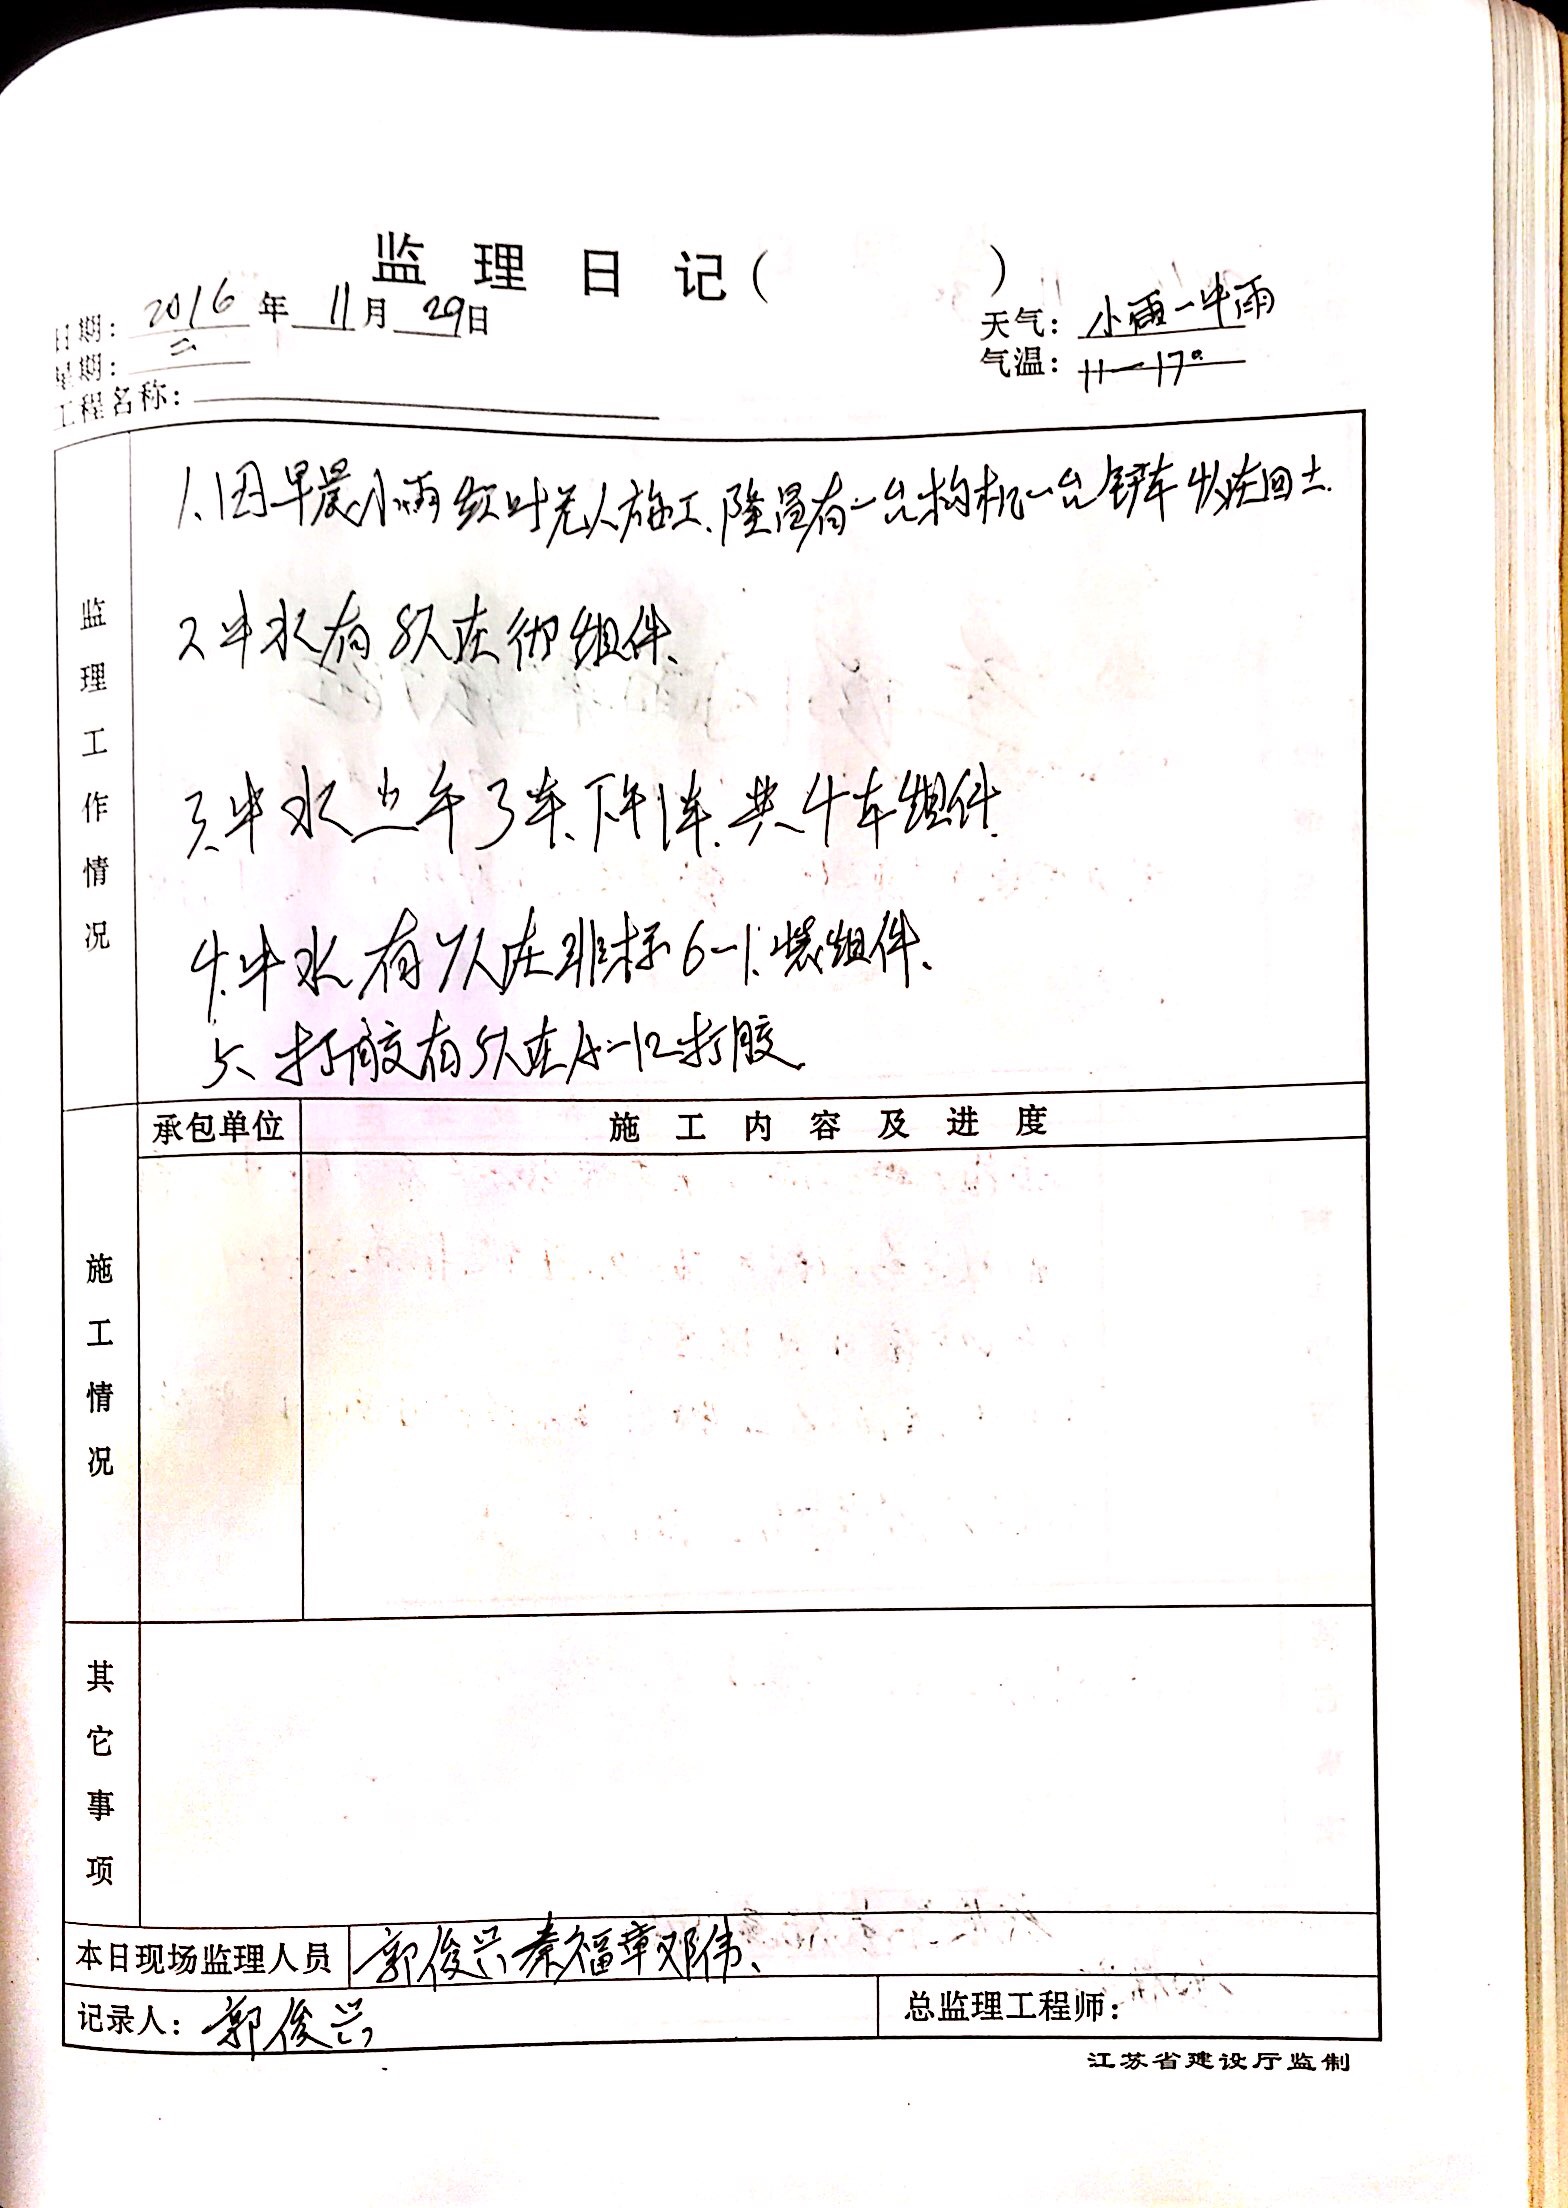 监理日记( )
日期: 2016 年 11 月 29 日
天气: 小雨一中雨
星期: 二
气温: 11—17°
工程名称:
监理工作情况
1、因早晨小雨红叶无人施工、隆昌有一台构机一台铲车 4人在回土.
2、中水有8人在 组件、
3、中水上午3车、下午1车、共4车组件.
4、中水有7人在非标6-1、装组件、
5、打胶有5人在 -12打胶.
承包单位 施工内容及进度
施工情况
其它事项
本日现场监理人员 郭俊兴 秦福章 邓伟、
记录人: 郭俊兴
总监理工程师:
江苏省建设厅监制